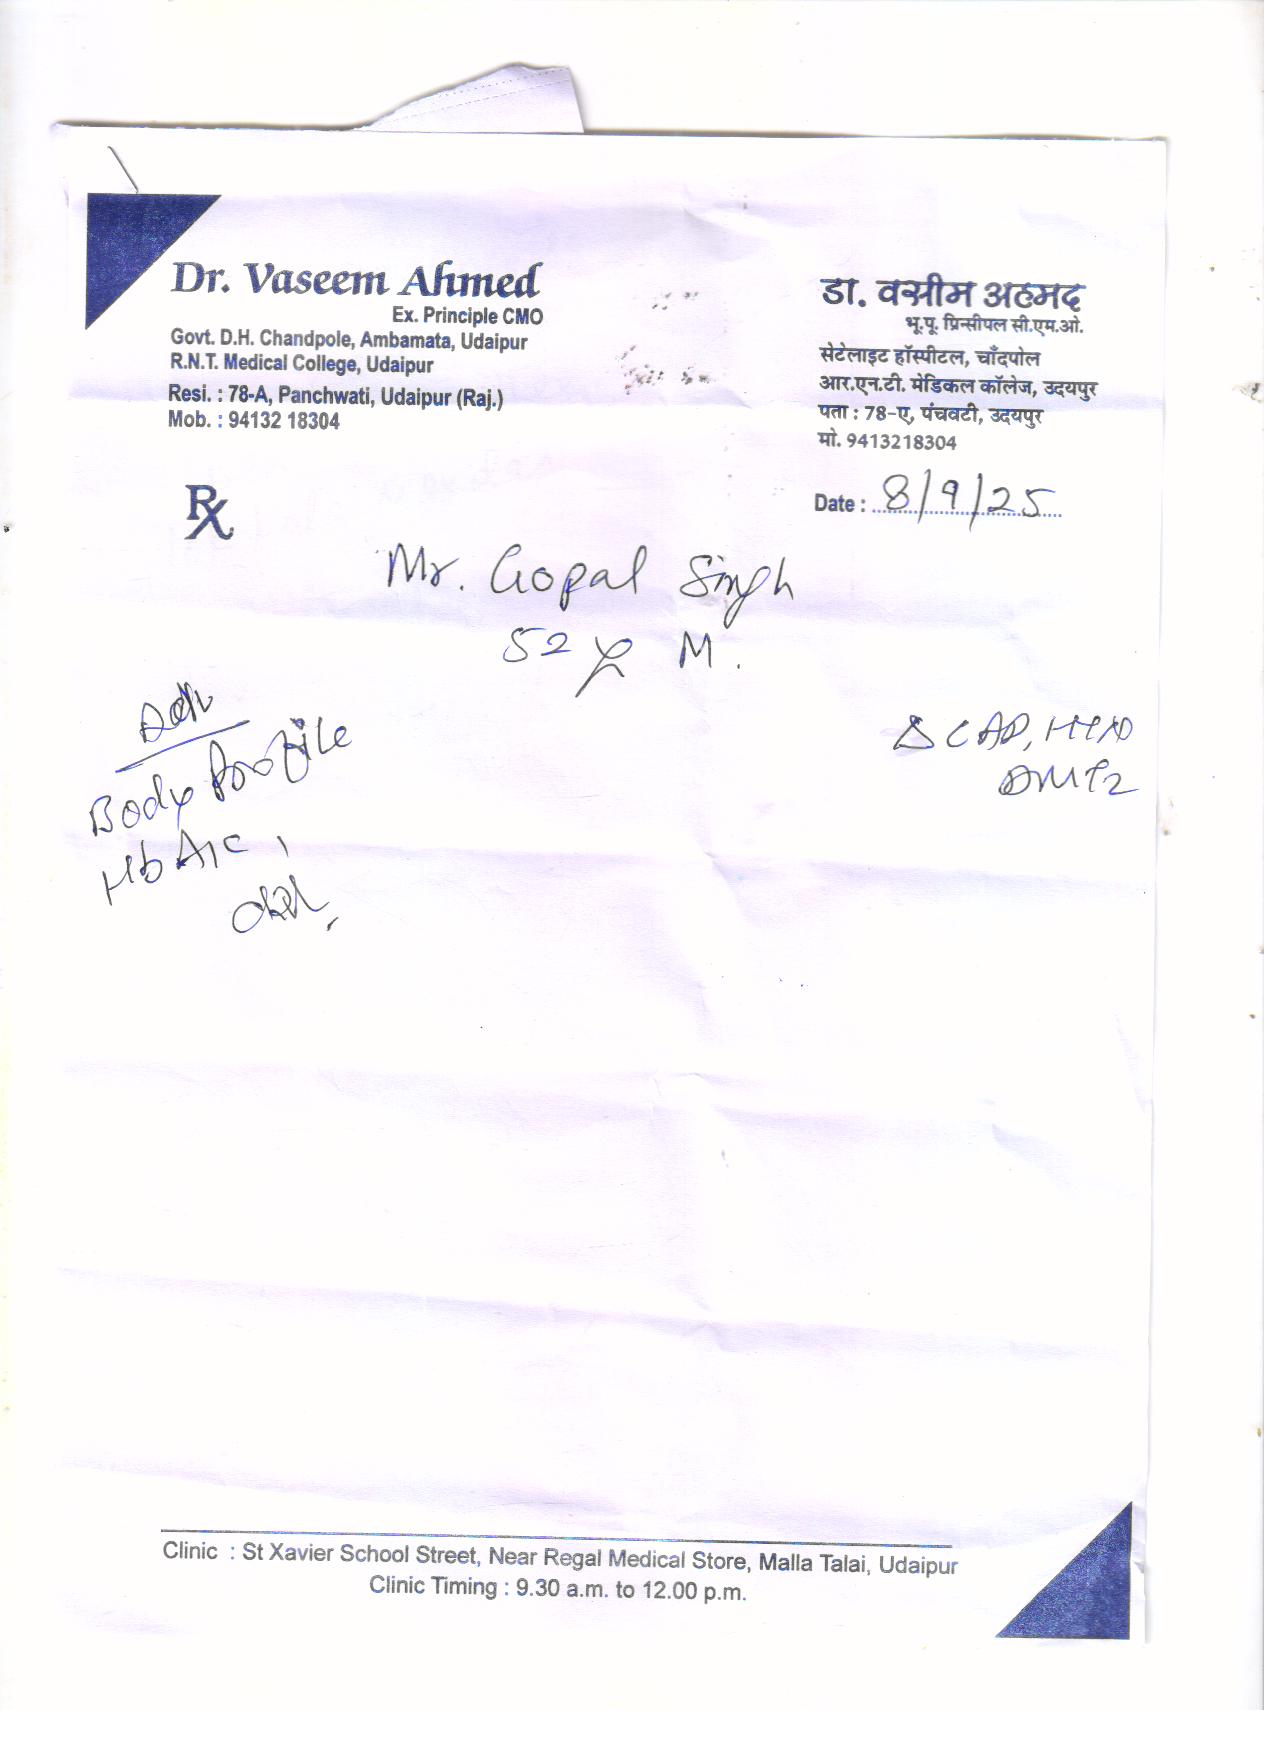 Dr. Vaseem Ahmed
Ex. Principle CMO
Govt. D.H. Chandpole, Ambamata, Udaipur
R.N.T. Medical College, Udaipur
Resi. : 78-A, Panchwati, Udaipur (Raj.)
Mob. : 94132 18304
डा. वसीम अहमद
भू.पू. प्रिन्सीपल सी.एम.ओ.
सेटेलाइट हॉस्पीटल, चाँदपोल
आर.एन.टी. मेडिकल कॉलेज, उदयपुर
पता : 78-ए, पंचवटी, उदयपुर
मो. 9413218304
Date : 8/9/25
Rx
Mr. Gopal Singh
52 y M.
Δ CAD, HTN
DMT2
Adv
Body Profile
HbA1C,
Clinic : St Xavier School Street, Near Regal Medical Store, Malla Talai, Udaipur
Clinic Timing : 9.30 a.m. to 12.00 p.m.